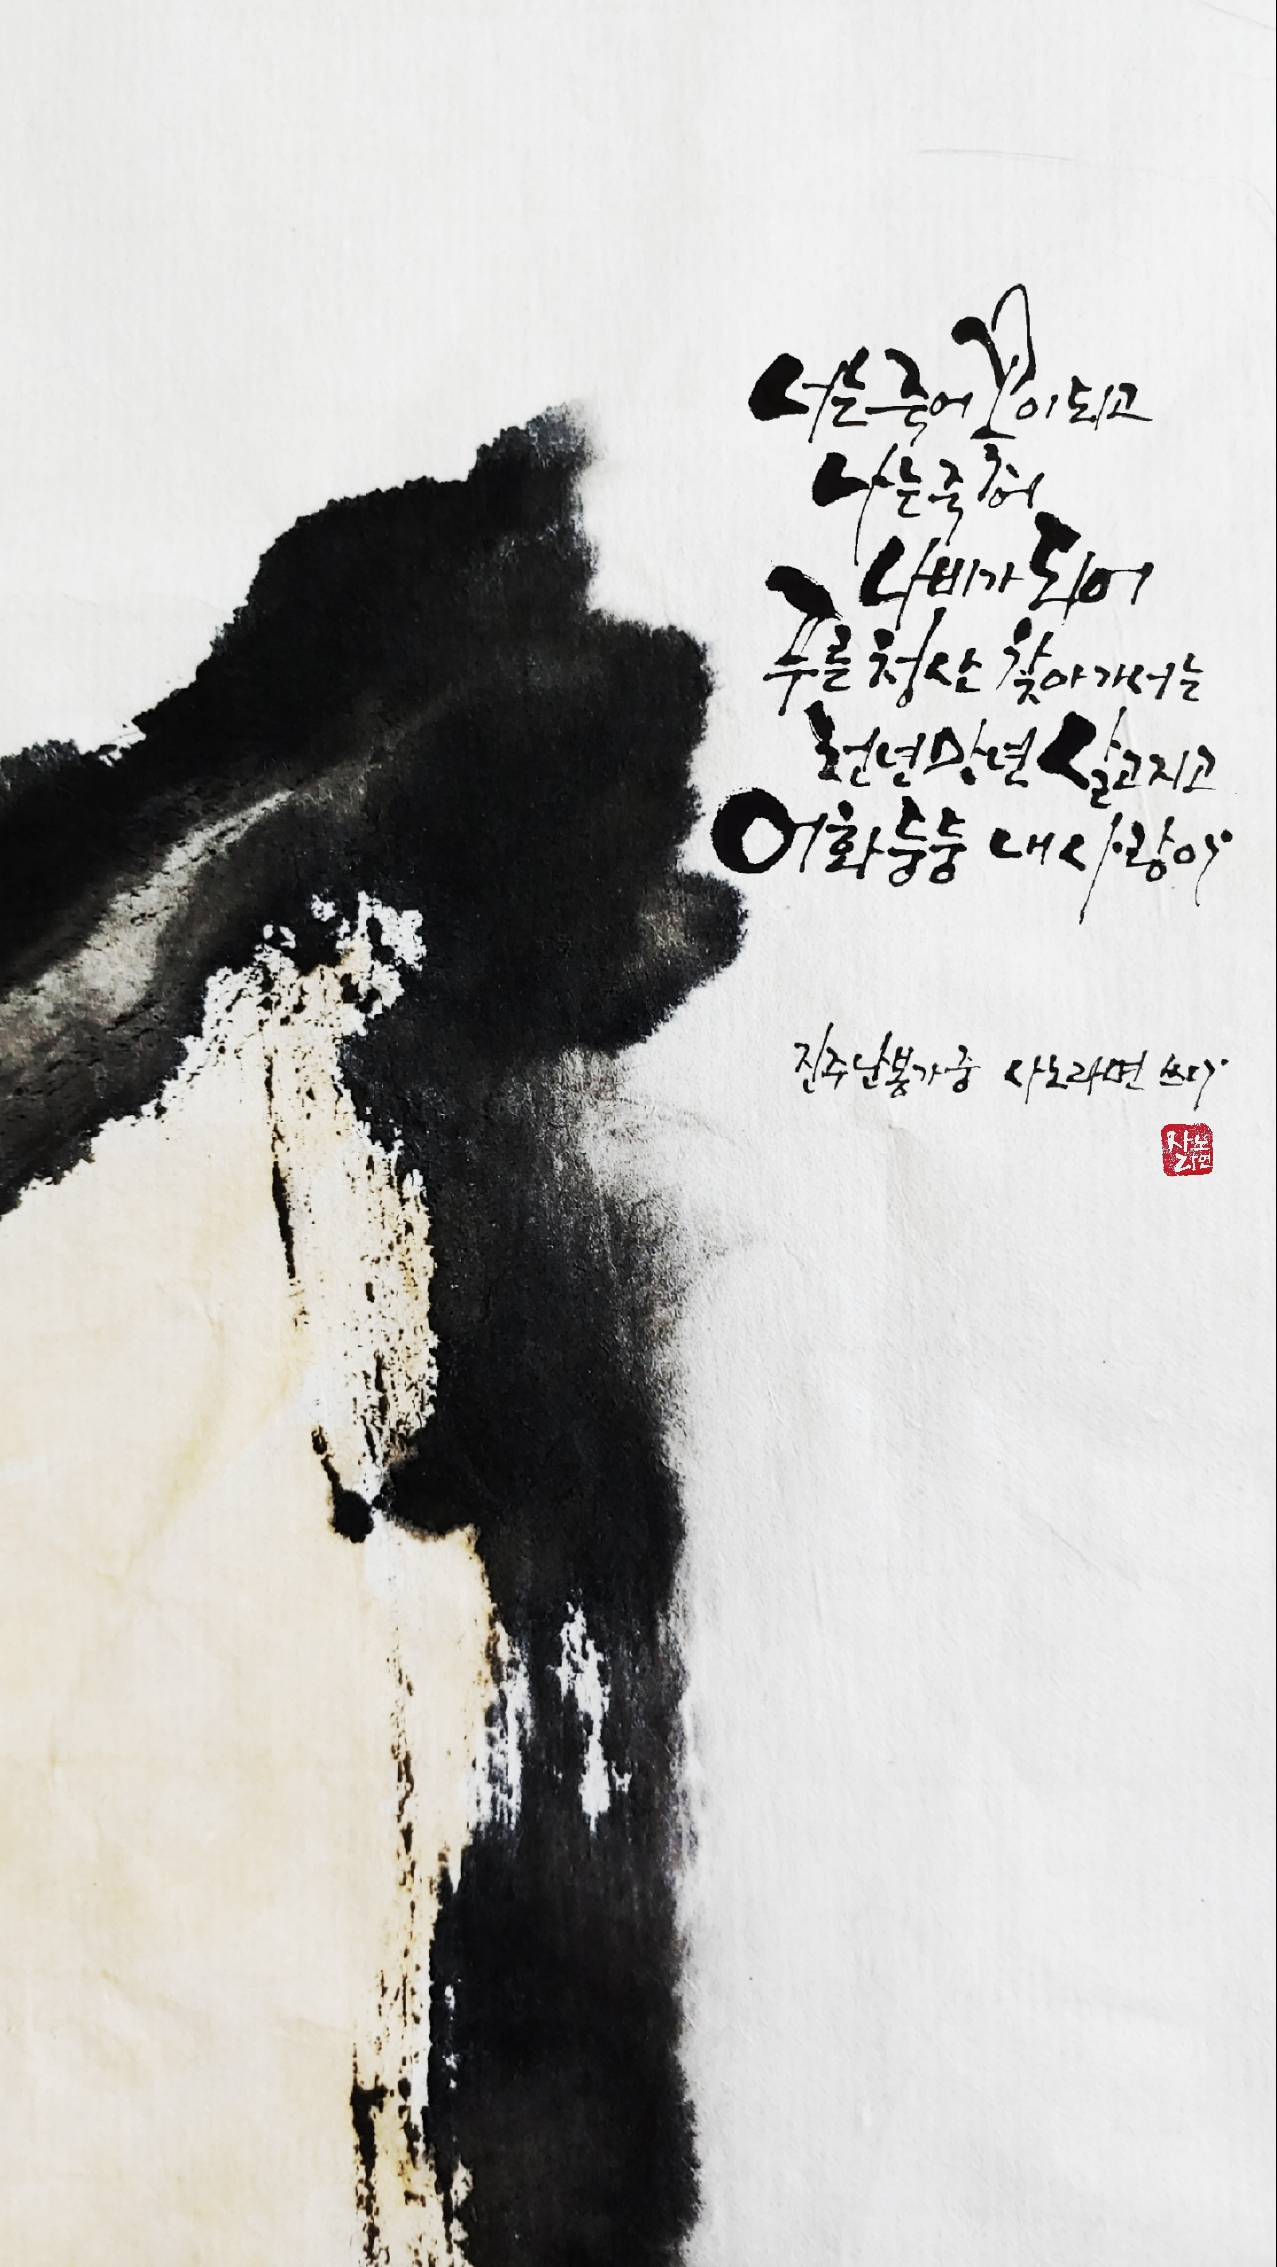 너는 죽어 꽃이 되고
나는 죽어
나비가 되어
푸른 청산 찾아가서는
천년만년 살고지고
어화둥둥 내사랑아
진주난봉가 중 사노라면 쓰다
사노라면